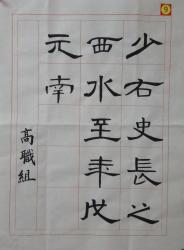 9
少右史長之
西水至年
元南
高職組